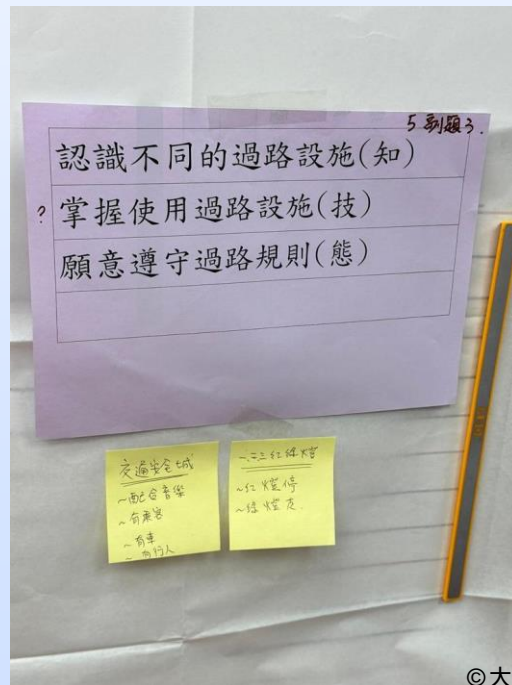 5 副題 3.
認識不同的過路設施(知)
? 掌握使用過路設施(技)
願意遵守過路規則(態)
交通安全城
~配合音樂
~有乘客
~有車
~有行人
一二三紅綠燈
~紅燈停
~綠燈走
© 大